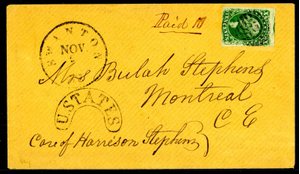 Paid 10
SWANTON
NOV
Mrs Bulah Stephens
Montreal
C E
U.STATES
Care of Harrison Stephens